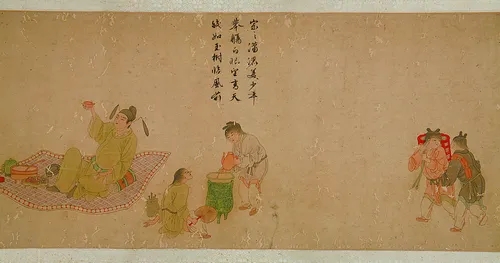 宗之瀟洒美少年
舉觴白眼望青天
皎如玉樹臨風前